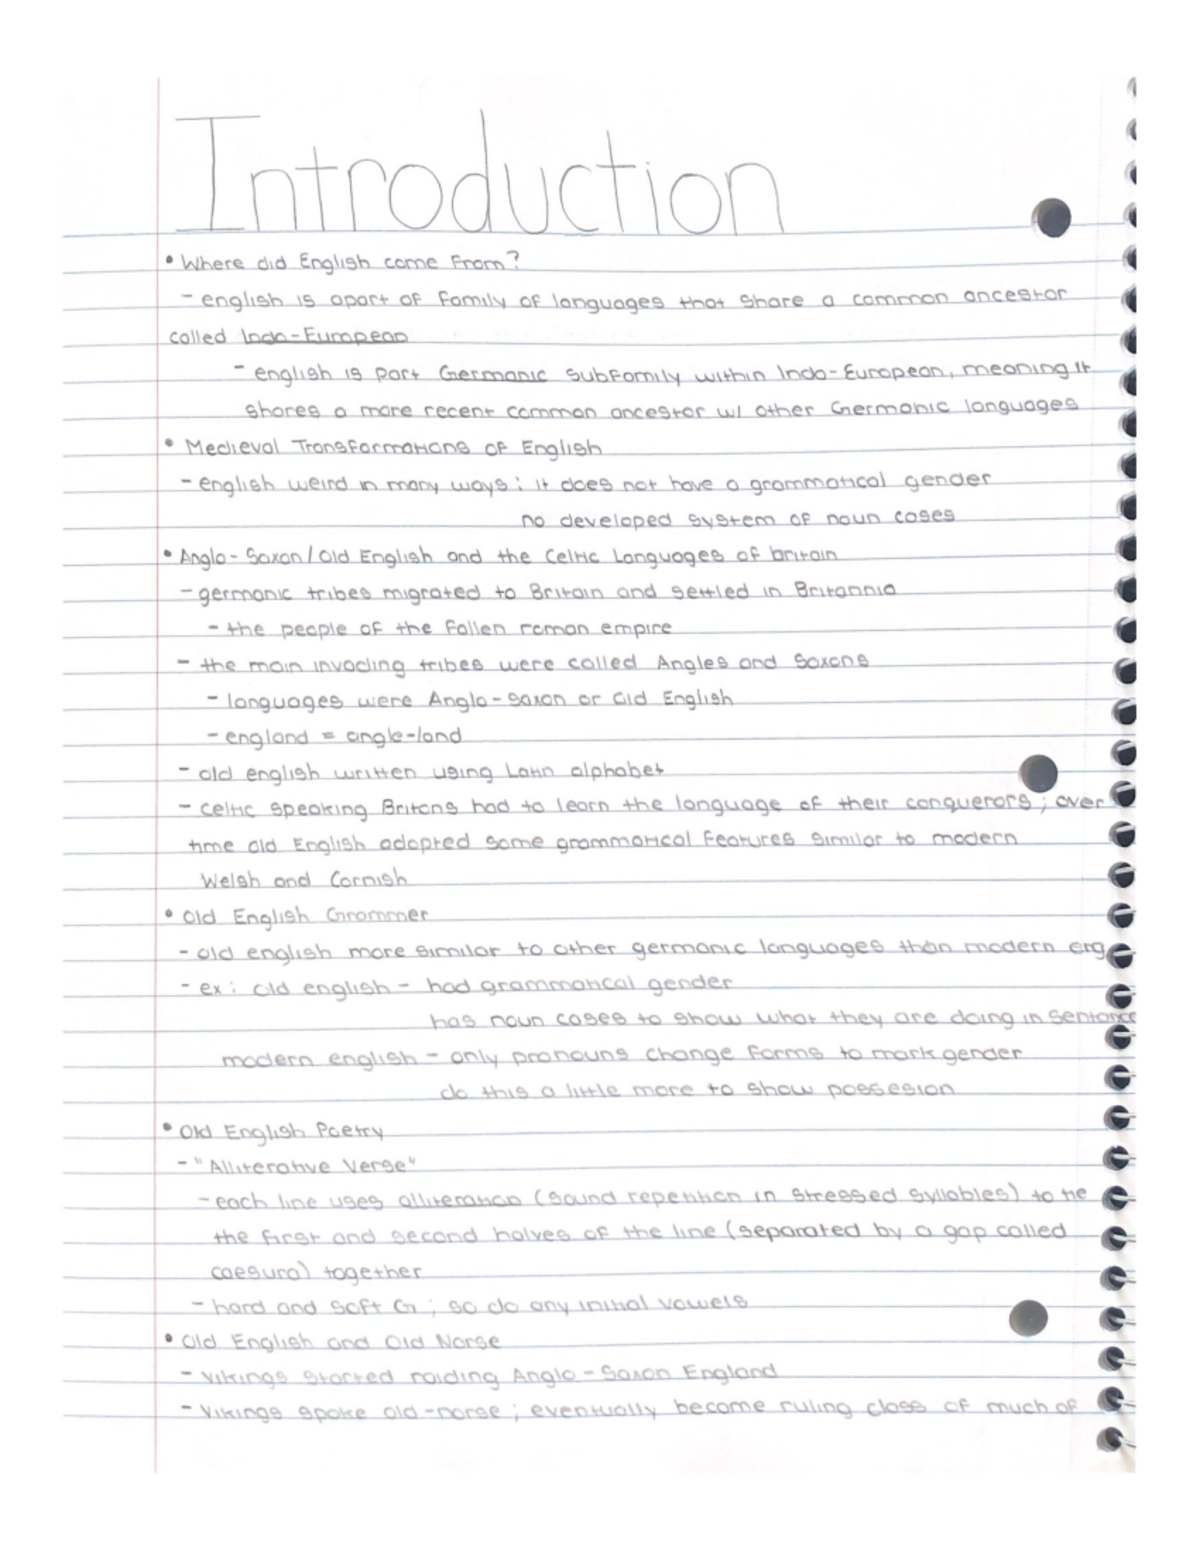 Introduction
• Where did English come From?
- english is apart of family of languages that share a common ancestor
called Indo-European
- english is part Germanic subfamily within Indo-European, meaning it
shares a more recent common ancestor w/ other Germanic languages
• Medieval Transformations of English
- english weird in many ways: it does not have a grammatical gender
no developed system of noun cases
• Anglo-Saxon/Old English and the Celtic Languages of britain
- germanic tribes migrated to Britain and settled in Britannia
- the people of the fallen roman empire
- the main invading tribes were called Angles and Saxons
- languages were Anglo-Saxon or Old English
- england = angle-land
- old english written using Latin alphabet
- celtic speaking Britons had to learn the language of their conquerors; over
time old English adopted some grammatical features similar to modern
Welsh and Cornish
• Old English Grammer
- old english more similar to other germanic languages than modern eng
- ex: old english - had grammatical gender
has noun cases to show what they are doing in sentance
modern english - only pronouns change forms to mark gender
do this a little more to show possesion
• Old English Poetry
- "Alliterative Verse"
- each line uses alliteration (sound repetition in stressed syllables) to tie
the first and second halves of the line (separated by a gap called
caesura) together
- hard and soft G; so do any initial vowels
• Old English and Old Norse
- vikings started raiding Anglo-Saxon England
- Vikings spoke old-norse; eventually become ruling class of much of